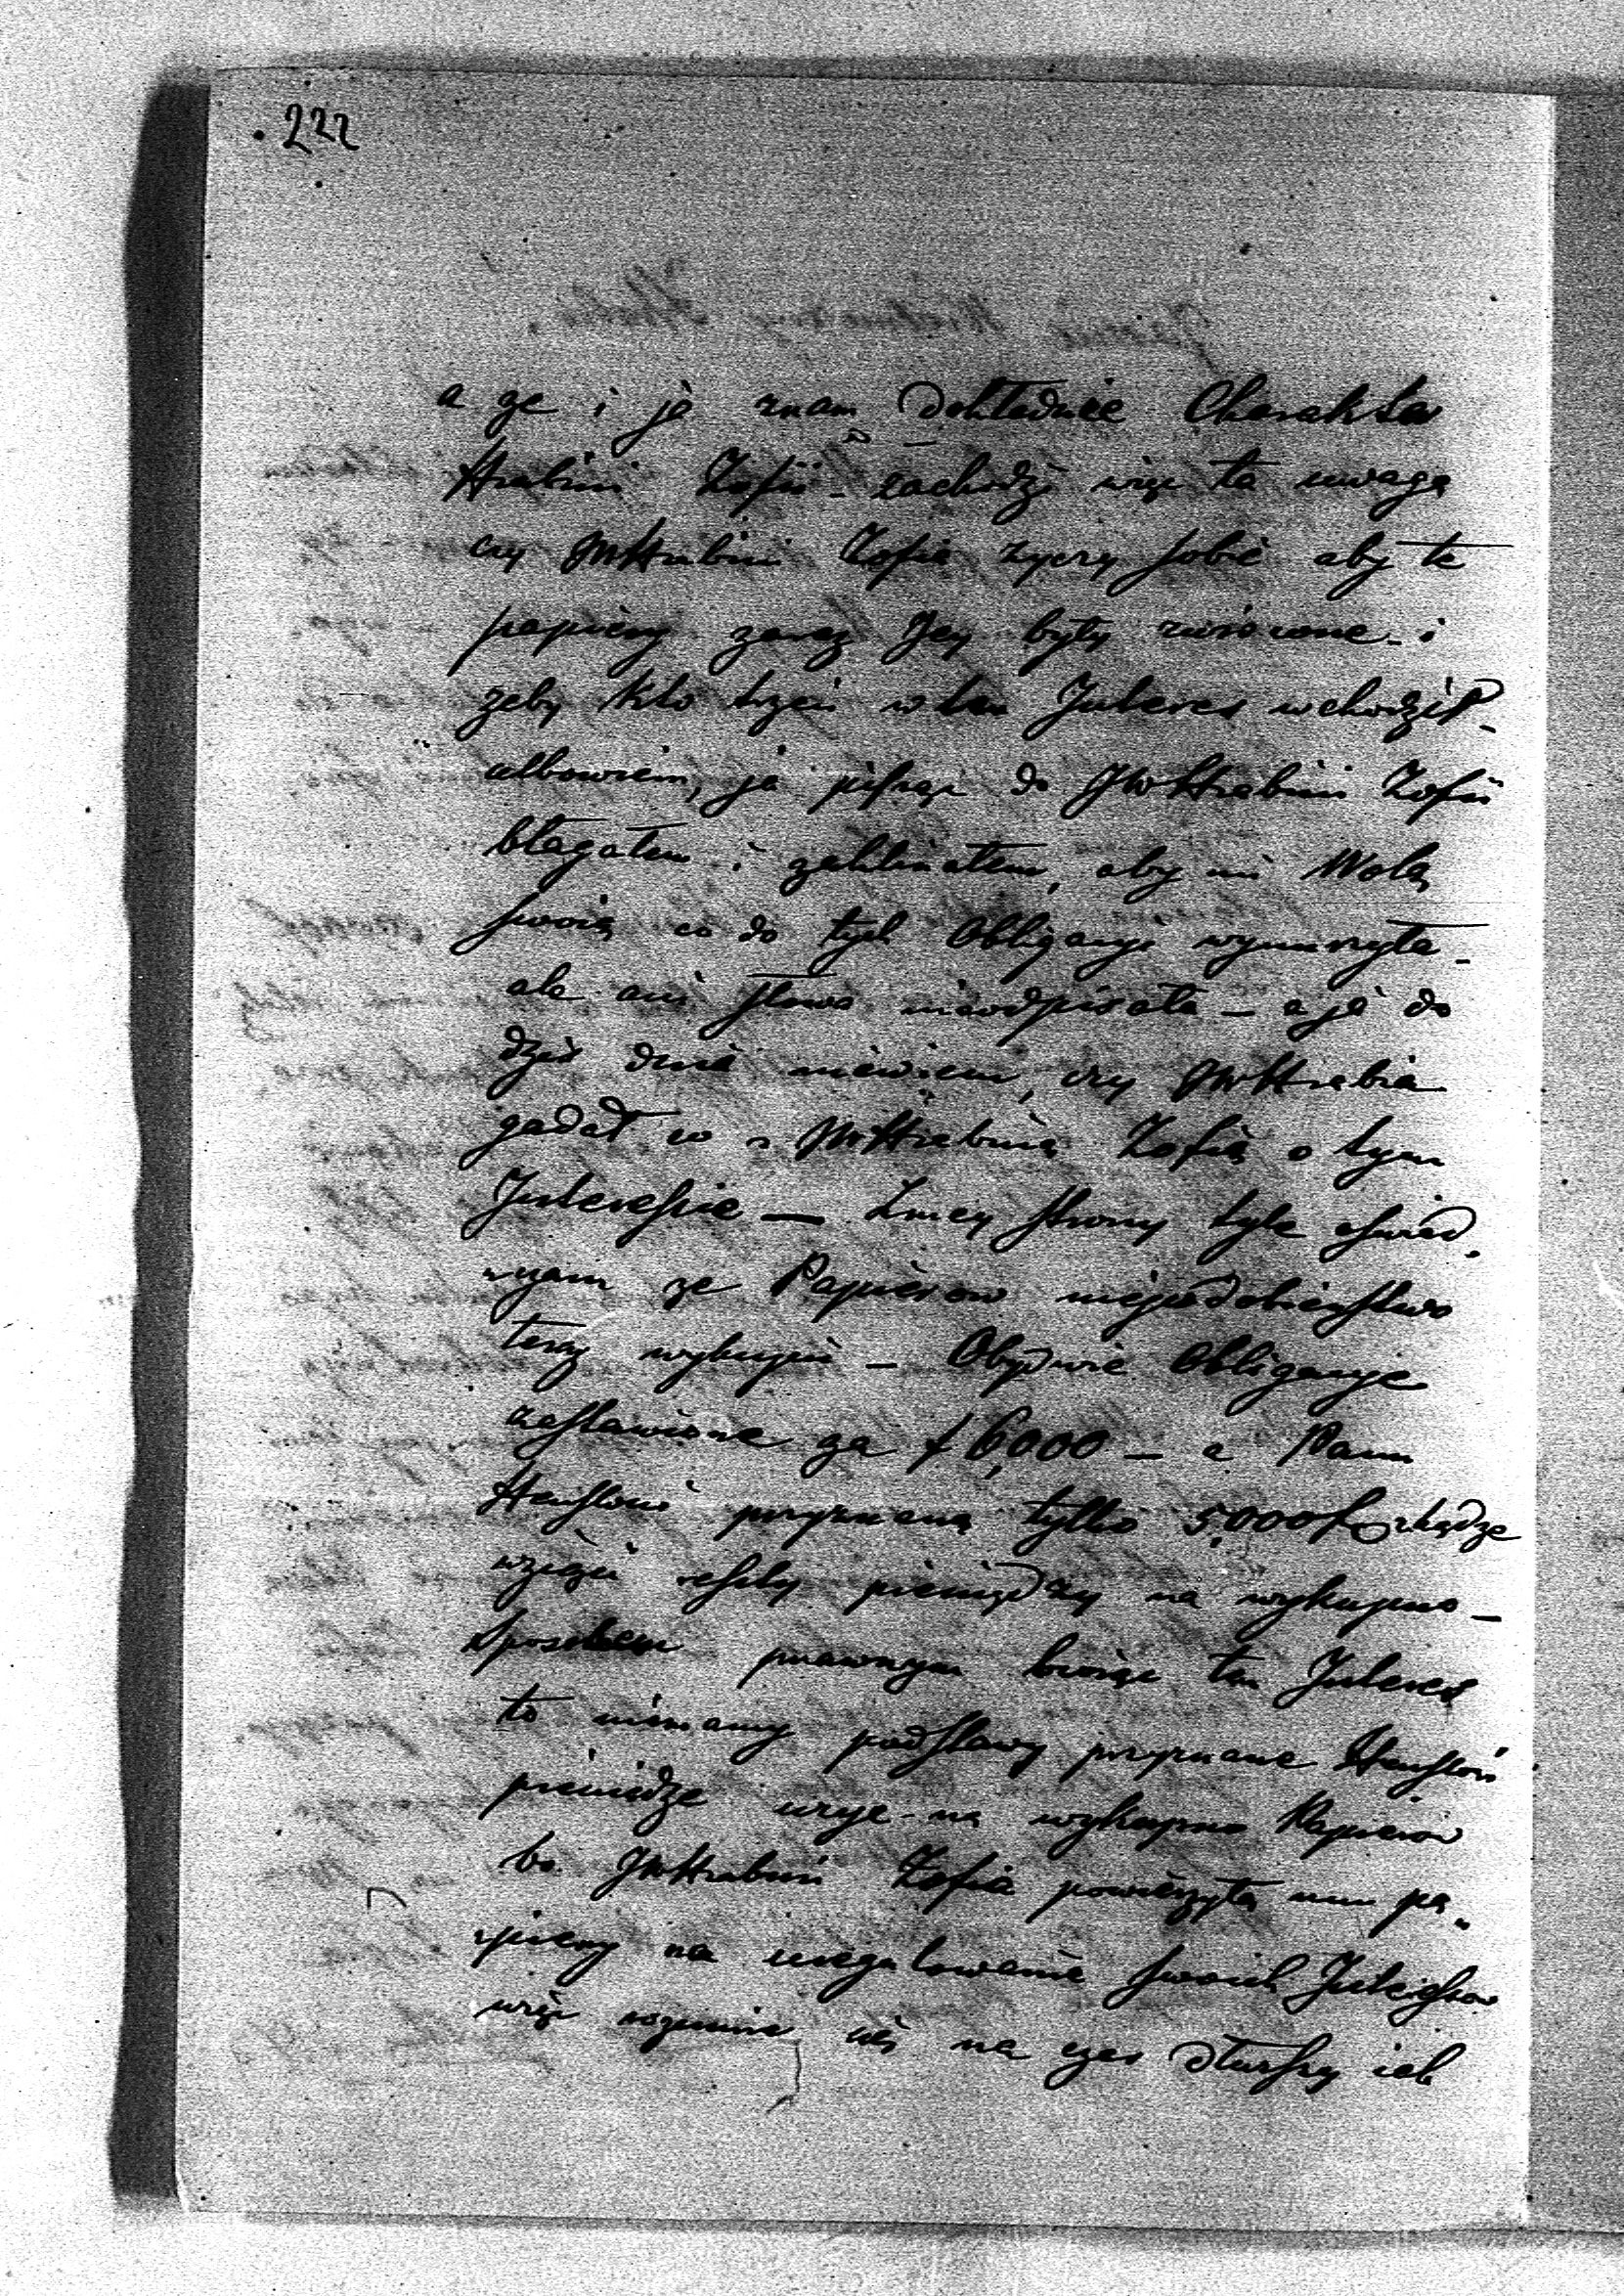 222
a ze i ja znam dokładnie Charakter
Hrabini Zofii - zachodzi więc ta uwaga
czy JWHrabini Zofia zyczy sobie aby te
papiery zaraz Jey były zwrócone - i
zeby kto trzeci w ten Interes wchodził -
albowiem, ja pisząc do JWHrabini Zofii
błagałem i zaklinałem, aby mi Wolą
swoią co do tych Obligacyi wynurzyła -
ale ani słowa nieodpisała - a ja do
dziś dnia niewiem, czy JWHrabia
gadał co z JWHrabiną Zofią o tym
Interesie — Zmey strony tyle oswiad
czam ze Papierow niepodobieństwo
teraz wykupić - Obydwie Obligacye
zastawione za f 6,000 - a Panu
przyznaną tylko 5,000 f zkądze
wziąść reszty pieniędzy na wykupno -
Sposobem prawnym biorąc ten Interes
to niemamy podstawy przyznane
pieniądze na wykupno Papierow
bo JWHrabini Zofia powierzyła mu pa
piery na uregulowanie swoich Interesow
więc rozumie się na czas dłuższy ich